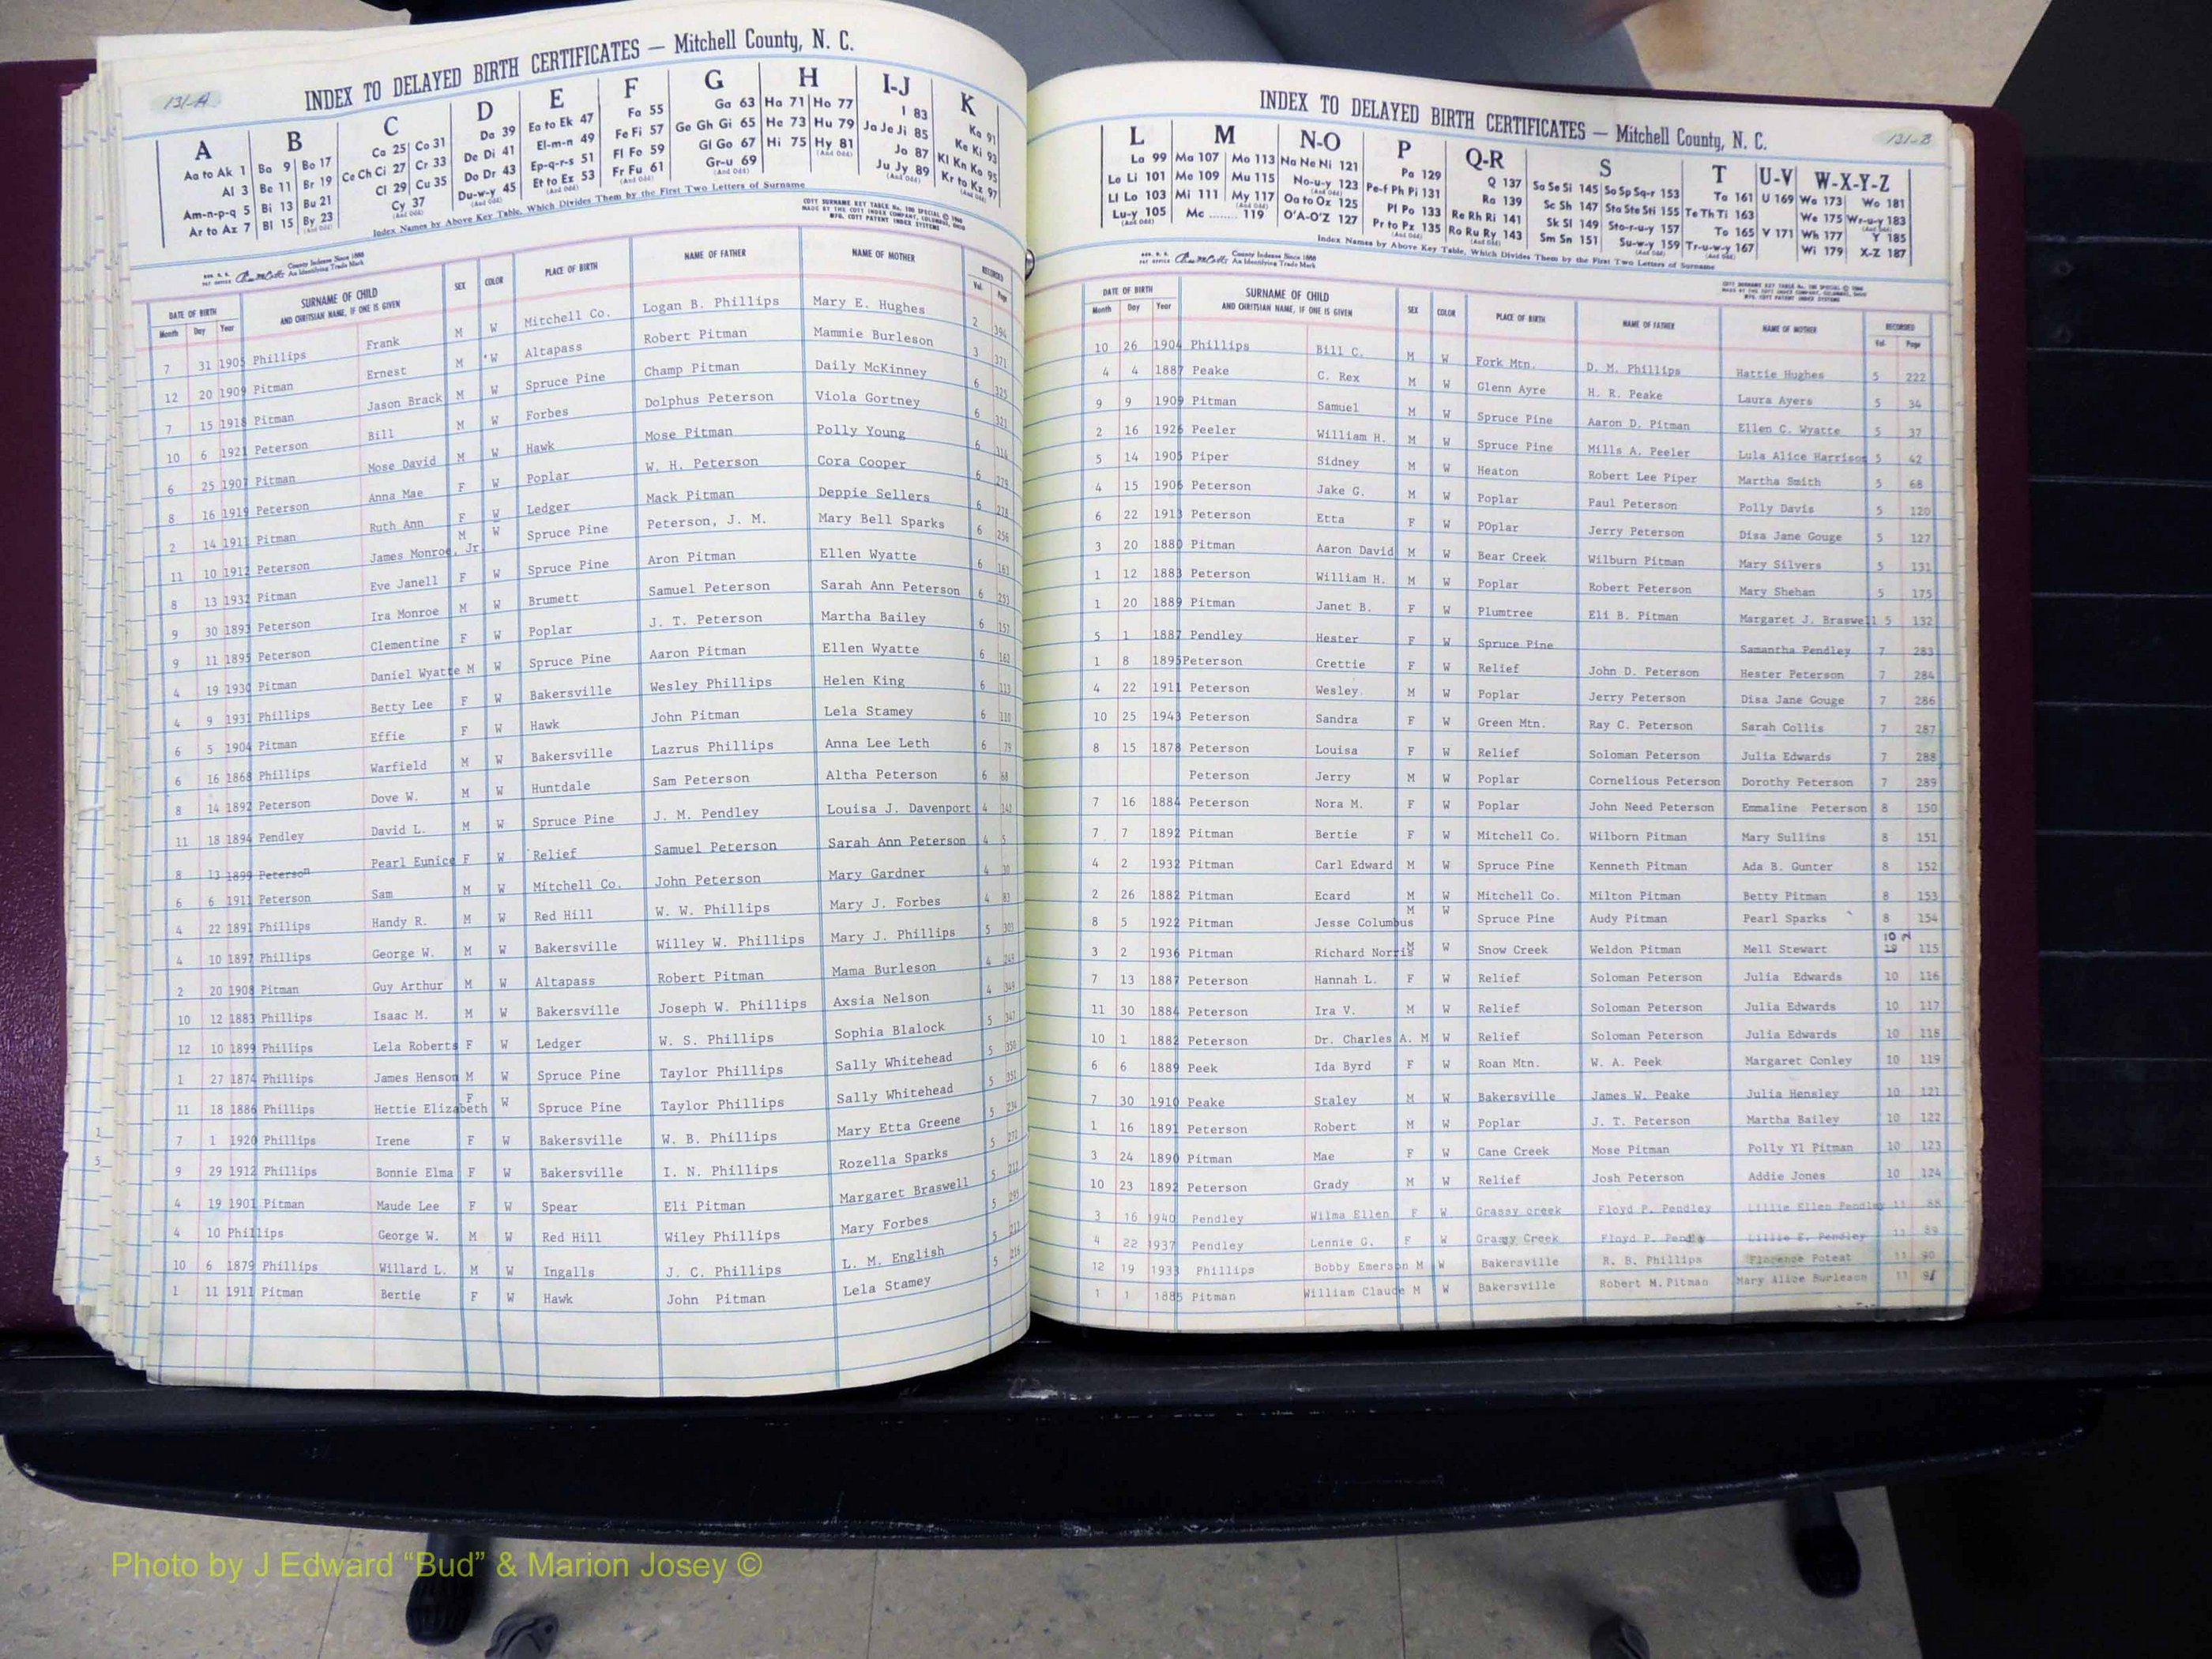 131-A
INDEX TO DELAYED BIRTH CERTIFICATES — Mitchell County, N. C.
A B C D E F G H I-J K
Aa to Ak 1 Ba 9 Bo 17 Ca 25 Co 31 Da 39 Ea to Ek 47 Fa 55 Ga 63 Ha 71 Ho 77 I 83 Ka 91
Al 3 Be 11 Br 19 Ce Ch Ci 27 Cr 33 De Di 41 El-m-n 49 Fe Fi 57 Ge Gh Gi 65 He 73 Hu 79 Ja Je Ji 85 Ke Ki 93
Am-n-p-q 5 Bi 13 Bu 21 Cl 29 Cu 35 Do Dr 43 Ep-q-r-s 51 Fl Fo 59 Gl Go 67 Hi 75 Hy 81 Jo 87 Kl Kn Ko 95
Ar to Az 7 Bl 15 By 23 Cy 37 Du-w-y 45 Et to Ez 53 Fr Fu 61 Gr-u 69 Ju Jy 89 Kr to Kz 97
Index Names by Above Key Table, Which Divides Them by the First Two Letters of Surname
COTT SURNAME KEY TABLE No. 100 SPECIAL © 1960
MADE BY THE COTT INDEX COMPANY, COLUMBUS, OHIO
MFG. COTT PATENT INDEX SYSTEMS
County Indexes Since 1888
An Identifying Trade Mark
DATE OF BIRTH SURNAME OF CHILD SEX COLOR PLACE OF BIRTH NAME OF FATHER NAME OF MOTHER RECORDED
Month Day Year AND CHRITSIAN NAME, IF ONE IS GIVEN Vol. Page
7 31 1905 Phillips Frank M W Mitchell Co. Logan B. Phillips Mary E. Hughes 2 394
12 20 1909 Pitman Ernest M W Altapass Robert Pitman Mammie Burleson 3 371
7 15 1918 Pitman Jason Brack M W Spruce Pine Champ Pitman Daily McKinney 6 325
10 6 1921 Peterson Bill M W Forbes Dolphus Peterson Viola Gortney 6 321
6 25 1907 Pitman Mose David M W Hawk Mose Pitman Polly Young 6
8 16 1919 Peterson Anna Mae F W Poplar W. H. Peterson Cora Cooper 6 279
2 14 1911 Pitman Ruth Ann F W Ledger Mack Pitman Deppie Sellers 6 278
11 10 1912 Peterson James Monroe, Jr M W Spruce Pine Peterson, J. M. Mary Bell Sparks 6 256
8 13 1932 Pitman Eve Janell F W Spruce Pine Aron Pitman Ellen Wyatte 6 161
9 30 1893 Peterson Ira Monroe M W Brumett Samuel Peterson Sarah Ann Peterson 6 251
9 11 1895 Peterson Clementine F W Poplar J. T. Peterson Martha Bailey 6 157
4 19 1930 Pitman Daniel Wyatte M W Spruce Pine Aaron Pitman Ellen Wyatte 6 162
4 9 1931 Phillips Betty Lee F W Bakersville Wesley Phillips Helen King 6 113
6 5 1904 Pitman Effie F W Hawk John Pitman Lela Stamey 6 110
6 16 1868 Phillips Warfield M W Bakersville Lazrus Phillips Anna Lee Leth 6 79
8 14 1892 Peterson Dove W. M W Huntdale Sam Peterson Altha Peterson 6 68
11 18 1894 Pendley David L. M W Spruce Pine J. M. Pendley Louisa J. Davenport 4 142
8 13 1899 Peterson Pearl Eunice F W Relief Samuel Peterson Sarah Ann Peterson 4 5
6 6 1911 Peterson Sam M W Mitchell Co. John Peterson Mary Gardner 4 30
4 22 1891 Phillips Handy R. M W Red Hill W. W. Phillips Mary J. Forbes 4 83
4 10 1897 Phillips George W. M W Bakersville Willey W. Phillips Mary J. Phillips 5 303
2 20 1908 Pitman Guy Arthur M W Altapass Robert Pitman Mama Burleson 4 243
10 12 1883 Phillips Isaac M. M W Bakersville Joseph W. Phillips Axsia Nelson 4 349
12 10 1899 Phillips Lela Roberts F W Ledger W. S. Phillips Sophia Blalock 5 347
1 27 1874 Phillips James Henson M W Spruce Pine Taylor Phillips Sally Whitehead 5 350
11 18 1886 Phillips Hettie Elizabeth F W Spruce Pine Taylor Phillips Sally Whitehead 5 351
7 1 1920 Phillips Irene F W Bakersville W. B. Phillips Mary Etta Greene 5 234
9 29 1912 Phillips Bonnie Elma F W Bakersville I. N. Phillips Rozella Sparks 5 272
4 19 1901 Pitman Maude Lee F W Spear Eli Pitman Margaret Braswell 5 212
4 10 Phillips George W. M W Red Hill Wiley Phillips Mary Forbes 5 295
10 6 1879 Phillips Willard L. M W Ingalls J. C. Phillips L. M. English 5 213
1 11 1911 Pitman Bertie F W Hawk John Pitman Lela Stamey 5 216
131-B
INDEX TO DELAYED BIRTH CERTIFICATES — Mitchell County, N. C.
L M N-O P Q-R S T U-V W-X-Y-Z
La 99 Ma 107 Mo 113 Na Ne Ni 121 Pa 129 Q 137 Sa Se Si 145 So Sp Sq-r 153 Ta 161 U 169 Wa 173 Wo 181
Le Li 101 Me 109 Mu 115 No-u-y 123 Pe-f Ph Pi 131 Ra 139 Sc Sh 147 Sta Ste Sti 155 Te Th Ti 163 We 175 Wr-u-y 183
Ll Lo 103 Mi 111 My 117 Oa to Ox 125 Pl Po 133 Re Rh Ri 141 Sk Sl 149 Sto-r-u-y 157 To 165 V 171 Wh 177 Y 185
Lu-y 105 Mc ........ 119 O'A-O'Z 127 Pr to Pz 135 Ro Ru Ry 143 Sm Sn 151 Su-w-y 159 Tr-u-w-y 167 Wi 179 X-Z 187
Index Names by Above Key Table, Which Divides Them by the First Two Letters of Surname
County Indexes Since 1888
An Identifying Trade Mark
COTT SURNAME KEY TABLE No. 100 SPECIAL © 1960
MADE BY THE COTT INDEX COMPANY, COLUMBUS, OHIO
MFG. COTT PATENT INDEX SYSTEMS
DATE OF BIRTH SURNAME OF CHILD SEX COLOR PLACE OF BIRTH NAME OF FATHER NAME OF MOTHER RECORDED
Month Day Year AND CHRITSIAN NAME, IF ONE IS GIVEN Vol. Page
10 26 1904 Phillips Bill C. M W Fork Mtn. D. M. Phillips Hattie Hughes 5 222
4 4 1887 Peake C. Rex M W Glenn Ayre H. R. Peake Laura Ayers 5 34
9 9 1909 Pitman Samuel M W Spruce Pine Aaron D. Pitman Ellen C. Wyatte 5 37
2 16 1926 Peeler William H. M W Spruce Pine Mills A. Peeler Lula Alice Harrison 5 42
5 14 1905 Piper Sidney M W Heaton Robert Lee Piper Martha Smith 5 68
4 15 1906 Peterson Jake G. M W Poplar Paul Peterson Polly Davis 5 120
6 22 1913 Peterson Etta F W POplar Jerry Peterson Disa Jane Gouge 5 127
3 20 1880 Pitman Aaron David M W Bear Creek Wilburn Pitman Mary Silvers 5 131
1 12 1883 Peterson William H. M W Poplar Robert Peterson Mary Shehan 5 175
1 20 1889 Pitman Janet B. F W Plumtree Eli B. Pitman Margaret J. Braswell 5 132
5 1 1887 Pendley Hester F W Spruce Pine Samantha Pendley 7 283
1 8 1895 Peterson Crettie F W Relief John D. Peterson Hester Peterson 7 284
4 22 1911 Peterson Wesley M W Poplar Jerry Peterson Disa Jane Gouge 7 286
10 25 1943 Peterson Sandra F W Green Mtn. Ray C. Peterson Sarah Collis 7 287
8 15 1878 Peterson Louisa F W Relief Soloman Peterson Julia Edwards 7 288
Peterson Jerry M W Poplar Cornelious Peterson Dorothy Peterson 7 289
7 16 1884 Peterson Nora M. F W Poplar John Need Peterson Emmaline Peterson 8 150
7 7 1892 Pitman Bertie F W Mitchell Co. Wilborn Pitman Mary Sullins 8 151
4 2 1932 Pitman Carl Edward M W Spruce Pine Kenneth Pitman Ada B. Gunter 8 152
2 26 1882 Pitman Ecard M W Mitchell Co. Milton Pitman Betty Pitman 8 153
8 5 1922 Pitman Jesse Columbus M W Spruce Pine Audy Pitman Pearl Sparks 8 154
3 2 1936 Pitman Richard Norris M W Snow Creek Weldon Pitman Mell Stewart 10 115
7 13 1887 Peterson Hannah L. F W Relief Soloman Peterson Julia Edwards 10 116
11 30 1884 Peterson Ira V. M W Relief Soloman Peterson Julia Edwards 10 117
10 1 1882 Peterson Dr. Charles A. M W Relief Soloman Peterson Julia Edwards 10 118
6 6 1889 Peek Ida Byrd F W Roan Mtn. W. A. Peek Margaret Conley 10 119
7 30 1910 Peake Staley M W Bakersville James W. Peake Julia Hensley 10 121
1 16 1891 Peterson Robert M W Poplar J. T. Peterson Martha Bailey 10 122
3 24 1890 Pitman Mae F W Cane Creek Mose Pitman Polly Yl Pitman 10 123
10 23 1892 Peterson Grady M W Relief Josh Peterson Addie Jones 10 124
3 16 1940 Pendley Wilma Ellen F W Grassy creek Floyd P. Pendley Lillie Ellen Pendley 11 88
4 22 1937 Pendley Lennie G. F W Grassy Creek Floyd P. Pendle Lillie E. Pendley 11 89
12 19 1933 Phillips Bobby Emerson M W Bakersville R. B. Phillips Florence Poteat 11 90
1 1 1885 Pitman William Claude M W Bakersville Robert M. Pitman Mary Alice Burleson 11 91
Photo by J Edward “Bud” & Marion Josey ©